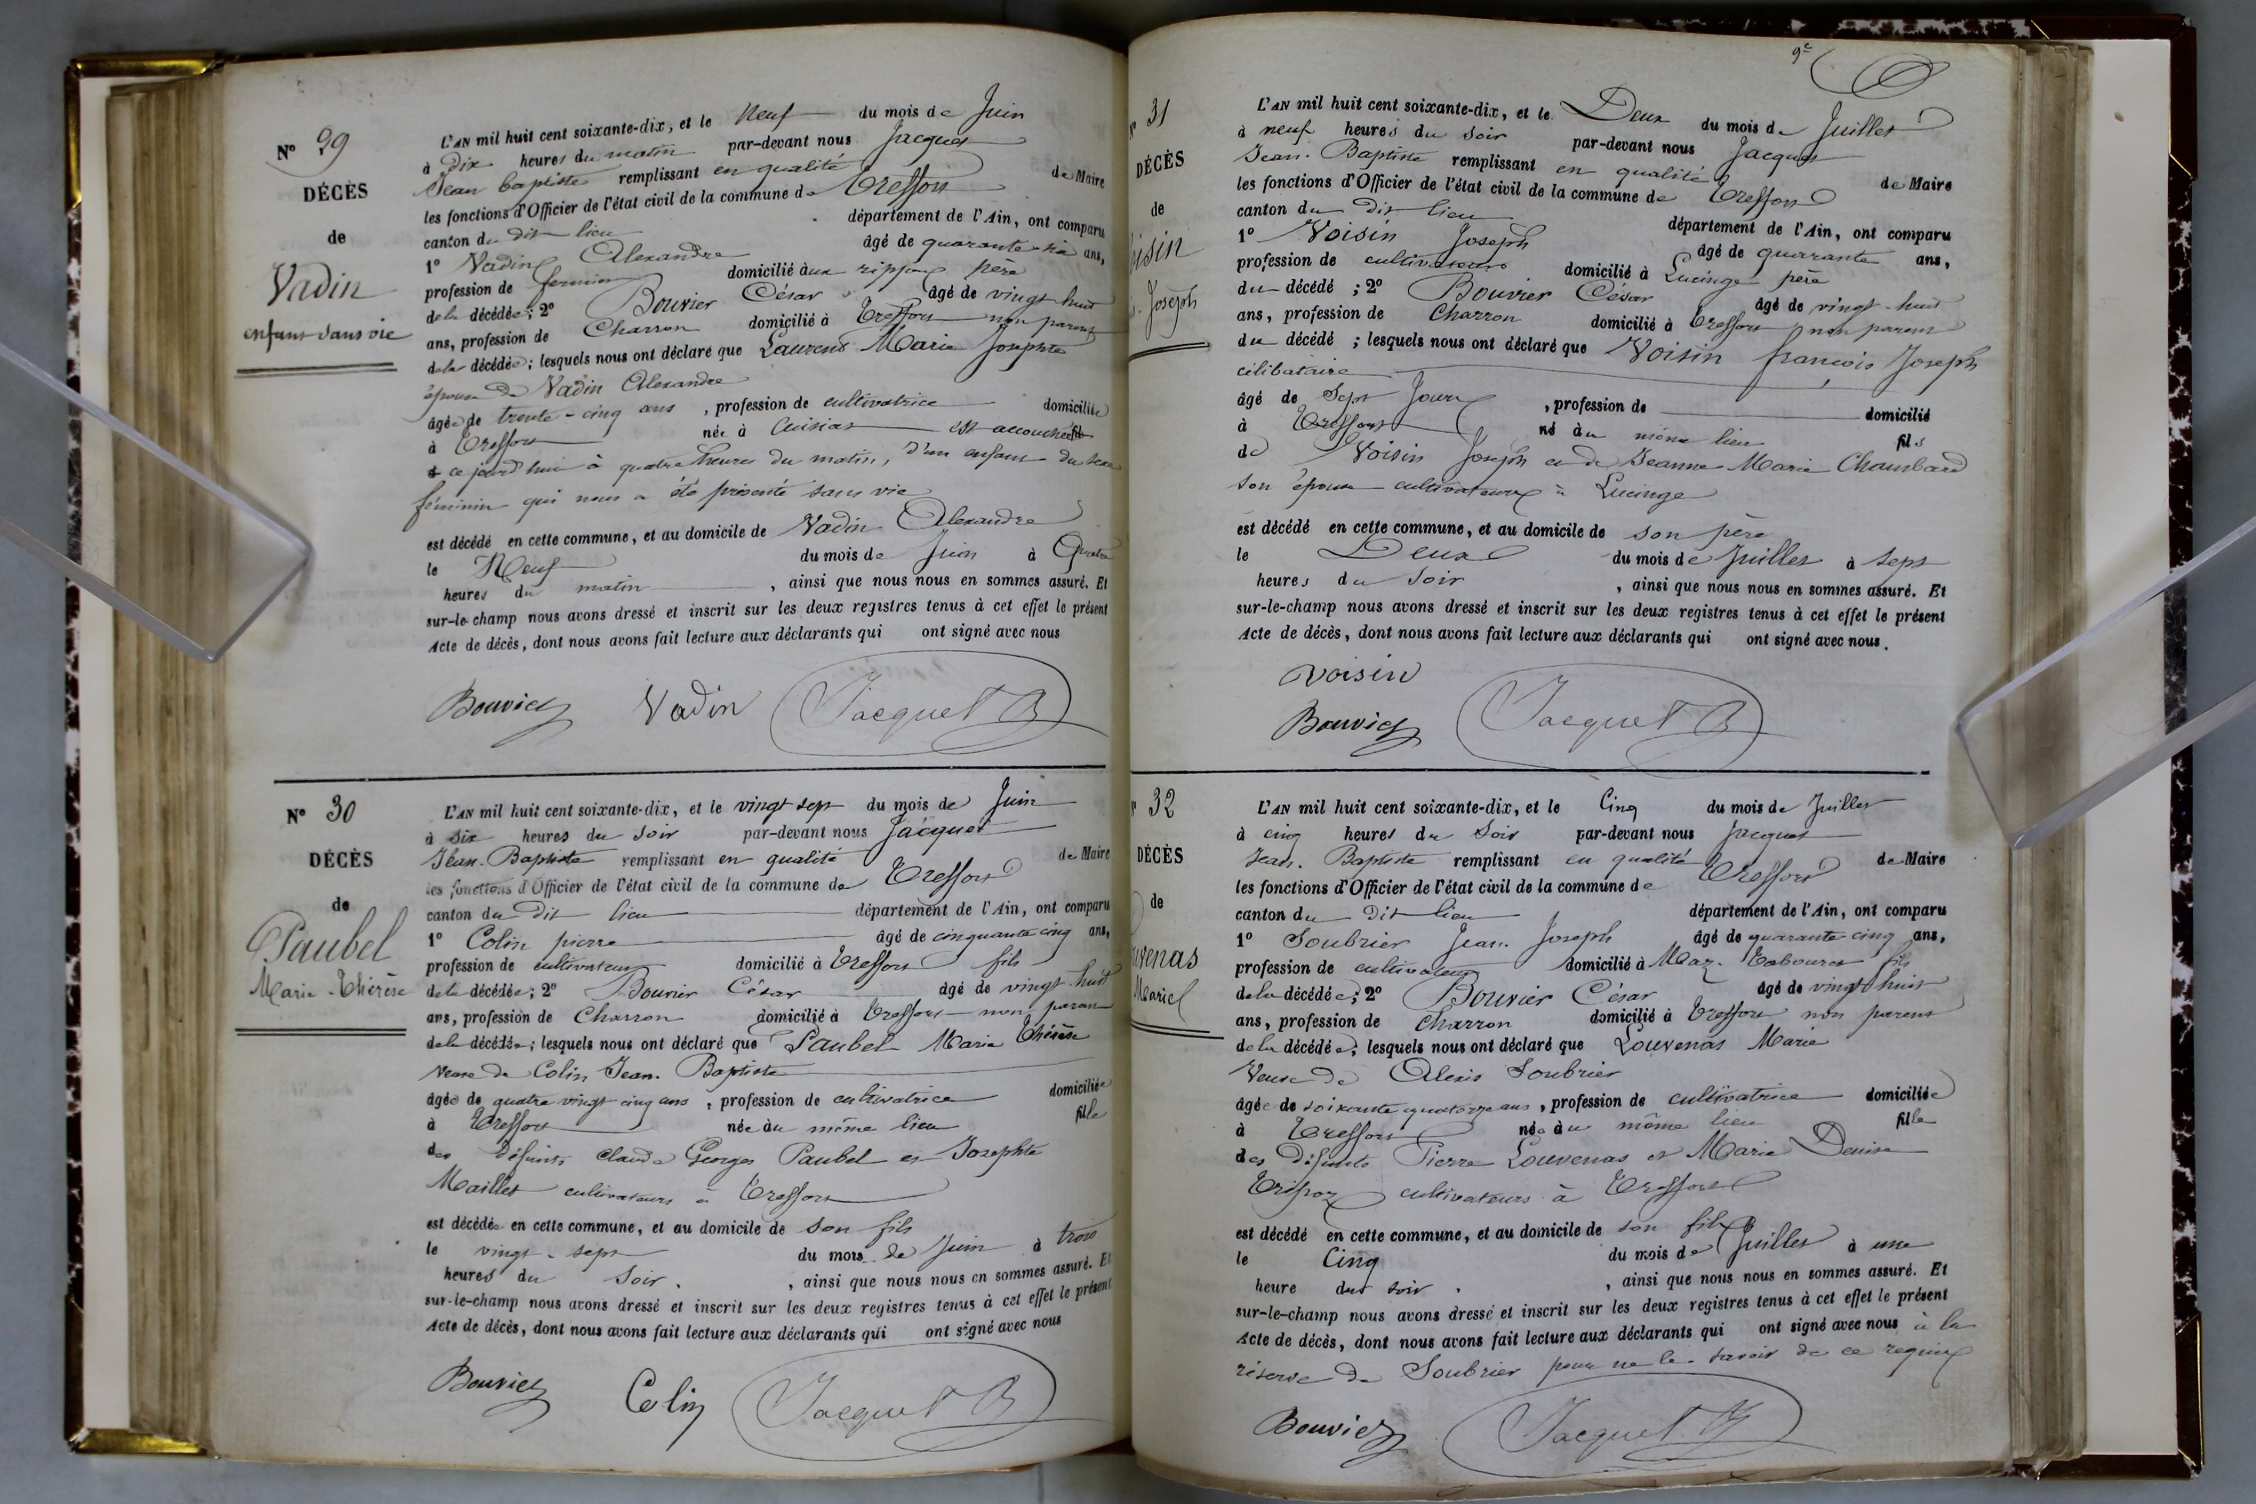 N° 29
DÉCÈS
de
Vadin
enfant sans vie
L'AN mil huit cent soixante-dix, et le neuf du mois de Juin
à Dix heures du matin par-devant nous Jacquet
Jean baptiste remplissant en qualité de Maire
les fonctions d'Officier de l'état civil de la commune de Treffort
canton du dit lieu département de l'Ain, ont comparu
1° Vadin Alexandre âgé de quarante six ans,
profession de fermier domicilié aux rippes père
de la décédée; 2° Bouvier César âgé de vingt huit
ans, profession de Charron domicilié à Treffort non parent
de la décédée; lesquels nous ont déclaré que Laurent Marie Josephte
épouse de Vadin Alexandre
âgée de trente-cinq ans, profession de cultivatrice domiciliée
à Treffort née à Cuisiat est accouchée
ce jourd'hui à quatre heures du matin, d'un enfant du sexe
féminin qui nous a été présenté sans vie
est décédé en cette commune, et au domicile de Vadin Alexandre
le Neuf du mois de Juin à Quatre
heures du matin, ainsi que nous nous en sommes assuré. Et
sur-le-champ nous avons dressé et inscrit sur les deux registres tenus à cet effet le présent
Acte de décès, dont nous avons fait lecture aux déclarants qui ont signé avec nous
Bouvier Vadin Jacquet B
N° 30
DÉCÈS
de
Paubel
Marie-Thérèse
L'AN mil huit cent soixante-dix, et le vingt sept du mois de Juin
à six heures du soir par-devant nous Jacquet
Jean-Baptiste remplissant en qualité de Maire
les fonctions d'Officier de l'état civil de la commune de Treffort
canton du dit lieu département de l'Ain, ont comparu
1° Colin pierre âgé de cinquante cinq ans,
profession de cultivateur domicilié à Treffort fils
de la décédée; 2° Bouvier César âgé de vingt-huit
ans, profession de Charron domicilié à Treffort non parent
de la décédée; lesquels nous ont déclaré que Paubel Marie Thérèse
Veuve de Colin Jean-Baptiste
âgée de quatre vingt cinq ans, profession de cultivatrice domiciliée
à Treffort née au même lieu fille
des défunts Claude Georges Paubel et Josephte
Maillet cultivateurs à Treffort
est décédée en cette commune, et au domicile de son fils
le vingt-sept du mois de Juin à trois
heures du soir, ainsi que nous nous en sommes assuré. Et
sur-le-champ nous avons dressé et inscrit sur les deux registres tenus à cet effet le présent
Acte de décès, dont nous avons fait lecture aux déclarants qui ont signé avec nous
Bouvier Colin Jacquet B
9e
31
DÉCÈS
de
oisin
Joseph
L'AN mil huit cent soixante-dix, et le Deux du mois de Juillet
à neuf heures du soir par-devant nous Jacquet
Jean-Baptiste remplissant en qualité de Maire
les fonctions d'Officier de l'état civil de la commune de Treffort
canton du dit lieu département de l'Ain, ont comparu
1° Voisin Joseph âgé de quarante ans,
profession de cultivateur domicilié à Lucinge père
du décédé; 2° Bouvier César âgé de vingt-huit
ans, profession de Charron domicilié à Treffort non parent
du décédé; lesquels nous ont déclaré que Voisin françois Joseph
célibataire
âgé de Sept Jours, profession de domicilié
à Treffort né au même lieu fils
de Voisin Joseph et de Jeanne Marie Chambard
son épouse cultivateurs à Lucinge
est décédé en cette commune, et au domicile de son père
le Deux du mois de Juillet à sept
heures du soir, ainsi que nous nous en sommes assuré. Et
sur-le-champ nous avons dressé et inscrit sur les deux registres tenus à cet effet le présent
Acte de décès, dont nous avons fait lecture aux déclarants qui ont signé avec nous.
voisin
Bouvier Jacquet B
32
DÉCÈS
de
uvenas
Marie
L'AN mil huit cent soixante-dix, et le Cinq du mois de Juillet
à cinq heures du soir par-devant nous Jacquet
Jean-Baptiste remplissant en qualité de Maire
les fonctions d'Officier de l'état civil de la commune de Treffort
canton du dit lieu département de l'Ain, ont comparu
1° Soubrier Jean-Joseph âgé de quarante cinq ans,
profession de cultivateur domicilié à Maz-Tabouret fils
de la décédée; 2° Bouvier César âgé de vingt huit
ans, profession de charron domicilié à Treffort non parent
de la décédée; lesquels nous ont déclaré que Louvenas Marie
Veuve de Alexis Soubrier
âgée de soixante quatorze ans, profession de cultivatrice domiciliée
à Treffort née au même lieu fille
des défunts Pierre Louvenas et Marie Denise
cultivateurs à Treffort
est décédé en cette commune, et au domicile de son fils
le Cinq du mois de Juillet à une
heure du soir, ainsi que nous nous en sommes assuré. Et
sur-le-champ nous avons dressé et inscrit sur les deux registres tenus à cet effet le présent
Acte de décès, dont nous avons fait lecture aux déclarants qui ont signé avec nous à la
réserve de Soubrier pour ne le savoir de ce requis
Bouvier Jacquet B